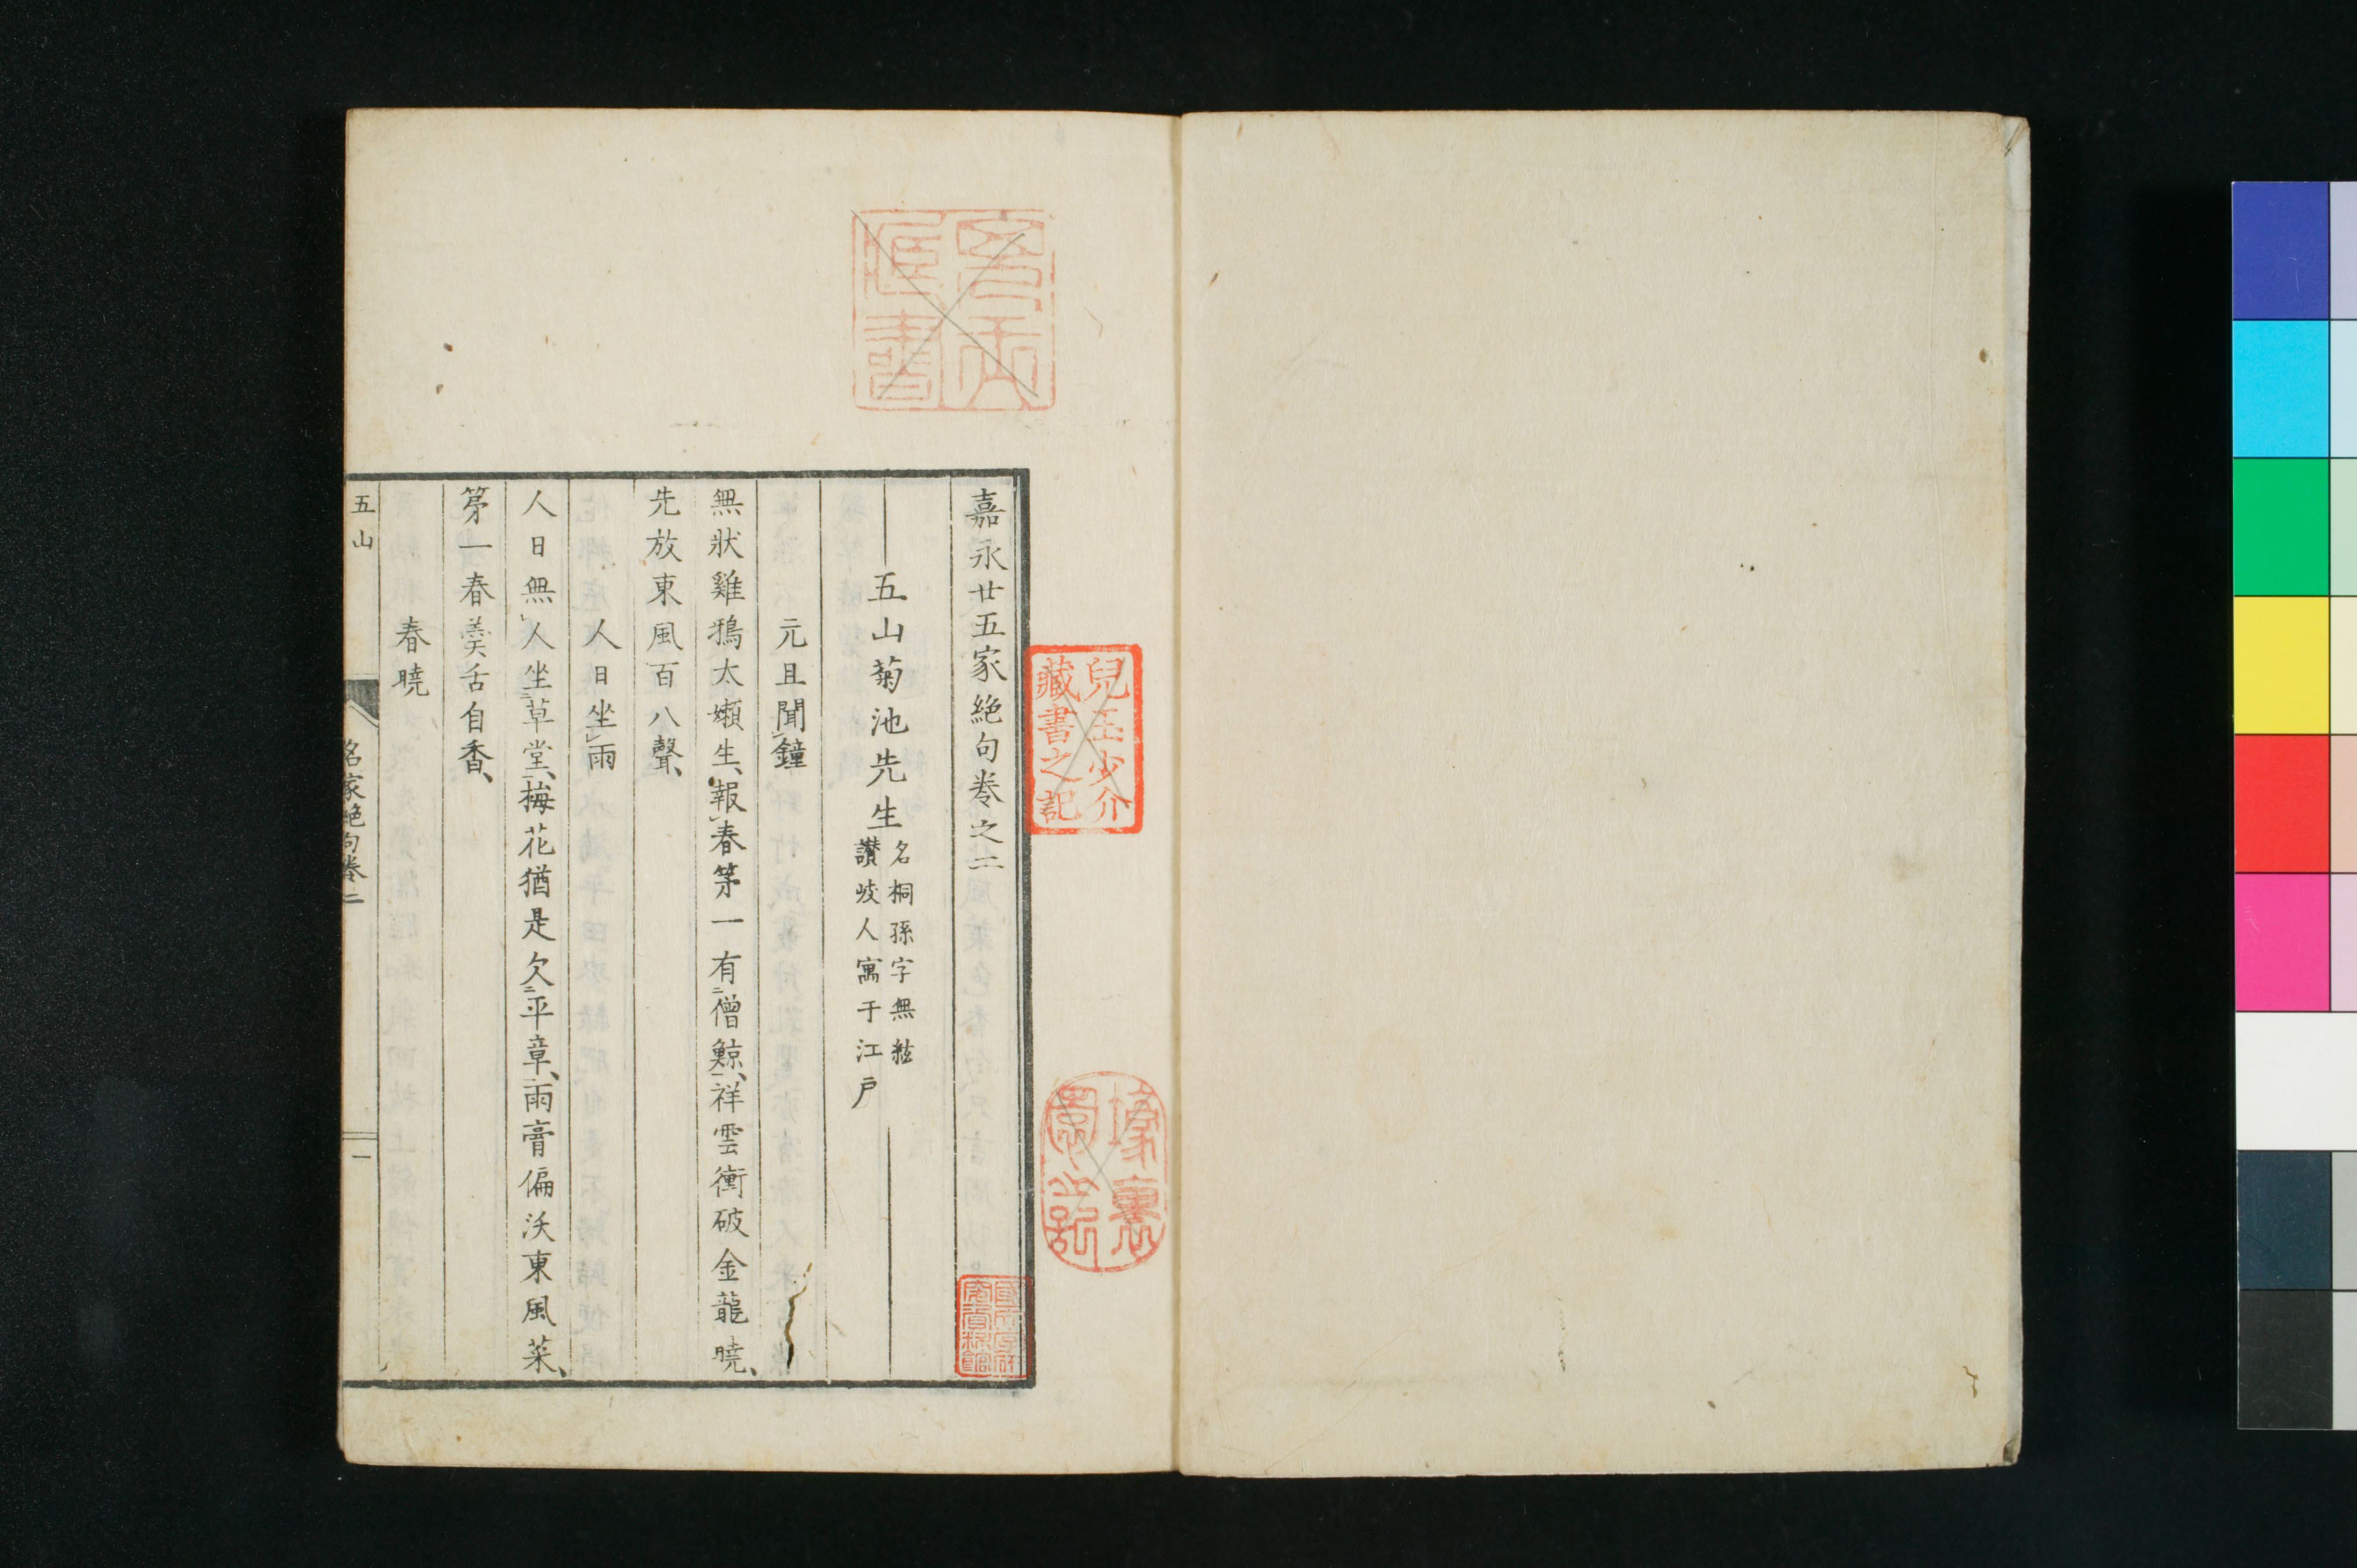 嘉永廿五家絶句卷之二
五山菊池先生
名桐孫字無絃
讃岐人寓于江戸
元旦聞鐘
無狀雞鴉太嬾生報春第一有僧鯨祥雲衝破金龍曉
先放東風百八聲
人日坐雨
人日無人坐草堂梅花猶是欠平章雨膏偏沃東風菜
第一春羹舌自香
春曉
五山
名家絶句卷二
一
兒玉少介
藏書之記
藏書